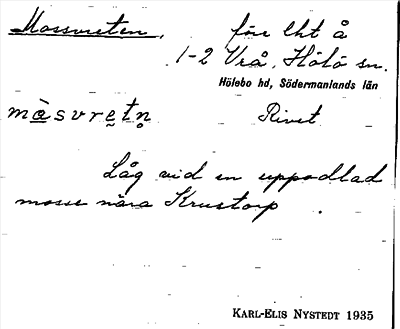 Mossvreten, före lht å
1-2 Vrå, Hölö sn.
Hölebo hd, Södermanlands län
mòsvretn̥ Rivet
Låg vid en uppodlad
mosse nära Krustorp.
KARL-ELIS NYSTEDT 1935